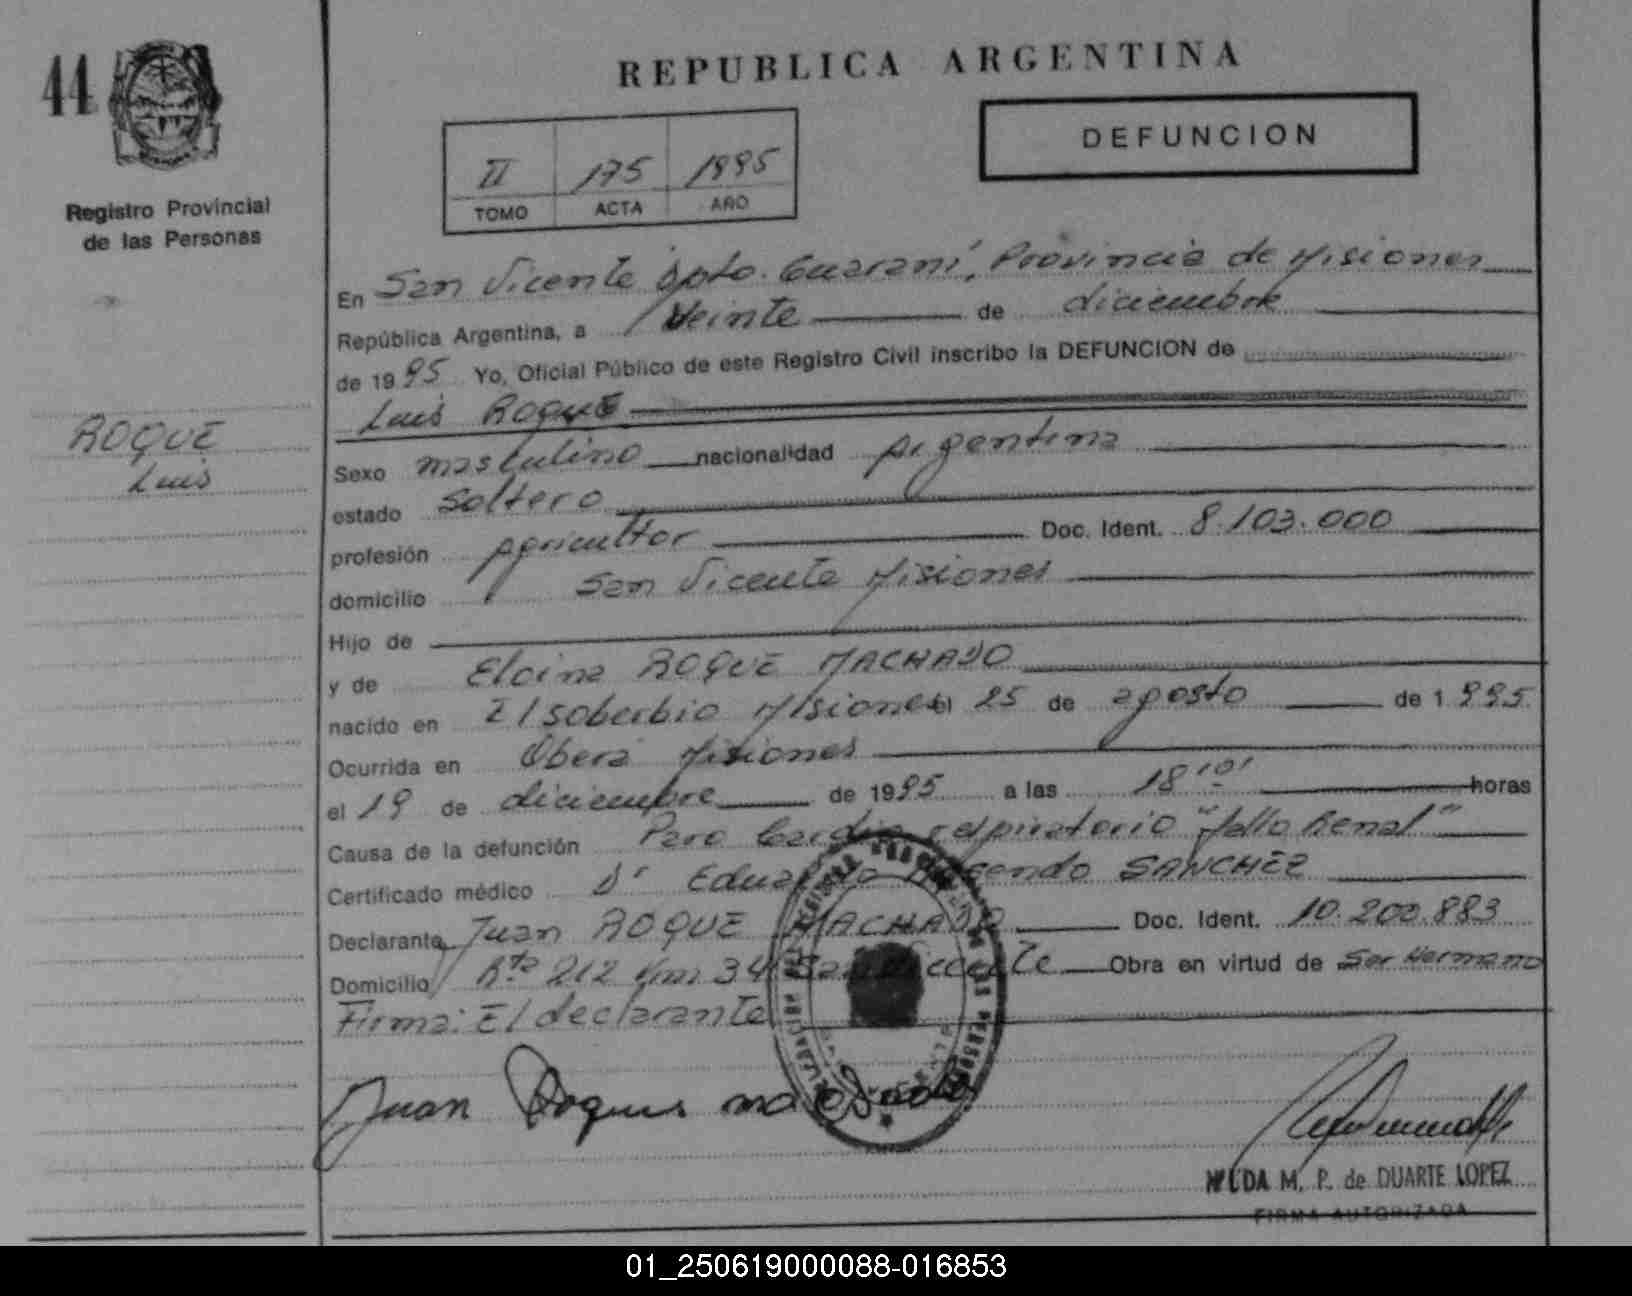 44
Registro Provincial
de las Personas
ROQUE
Luis
REPUBLICA ARGENTINA
DEFUNCION
II 175 1995
TOMO ACTA AÑO
En San Vicente Dpto. Guaraní, Provincia de Misiones
República Argentina, a Veinte de diciembre
de 1995 Yo, Oficial Público de este Registro Civil inscribo la DEFUNCION de
Luis ROQUE
Sexo masculino nacionalidad Argentina
estado Soltero
profesión Agricultor Doc. Ident. 8.103.000
domicilio San Vicente Misiones
Hijo de
y de Elcina ROQUE MACHADO
nacido en El soberbio Misiones el 25 de agosto de 1.995
Ocurrida en Oberá Misiones
el 19 de diciembre de 1995 a las 18'0' horas
Causa de la defunción Paro Cardio respiratorio "fallo Renal"
Certificado médico Dr Eduardo SANCHEZ
Declarante Juan ROQUE MACHADO Doc. Ident. 10.200.883
Domicilio Rta 212 Km 34 San Vicente Obra en virtud de Ser Hermano
Firma: El declarante
Juan Roques
HILDA M. P. de DUARTE LOPEZ
FIRMA AUTORIZADA
01_250619000088-016853